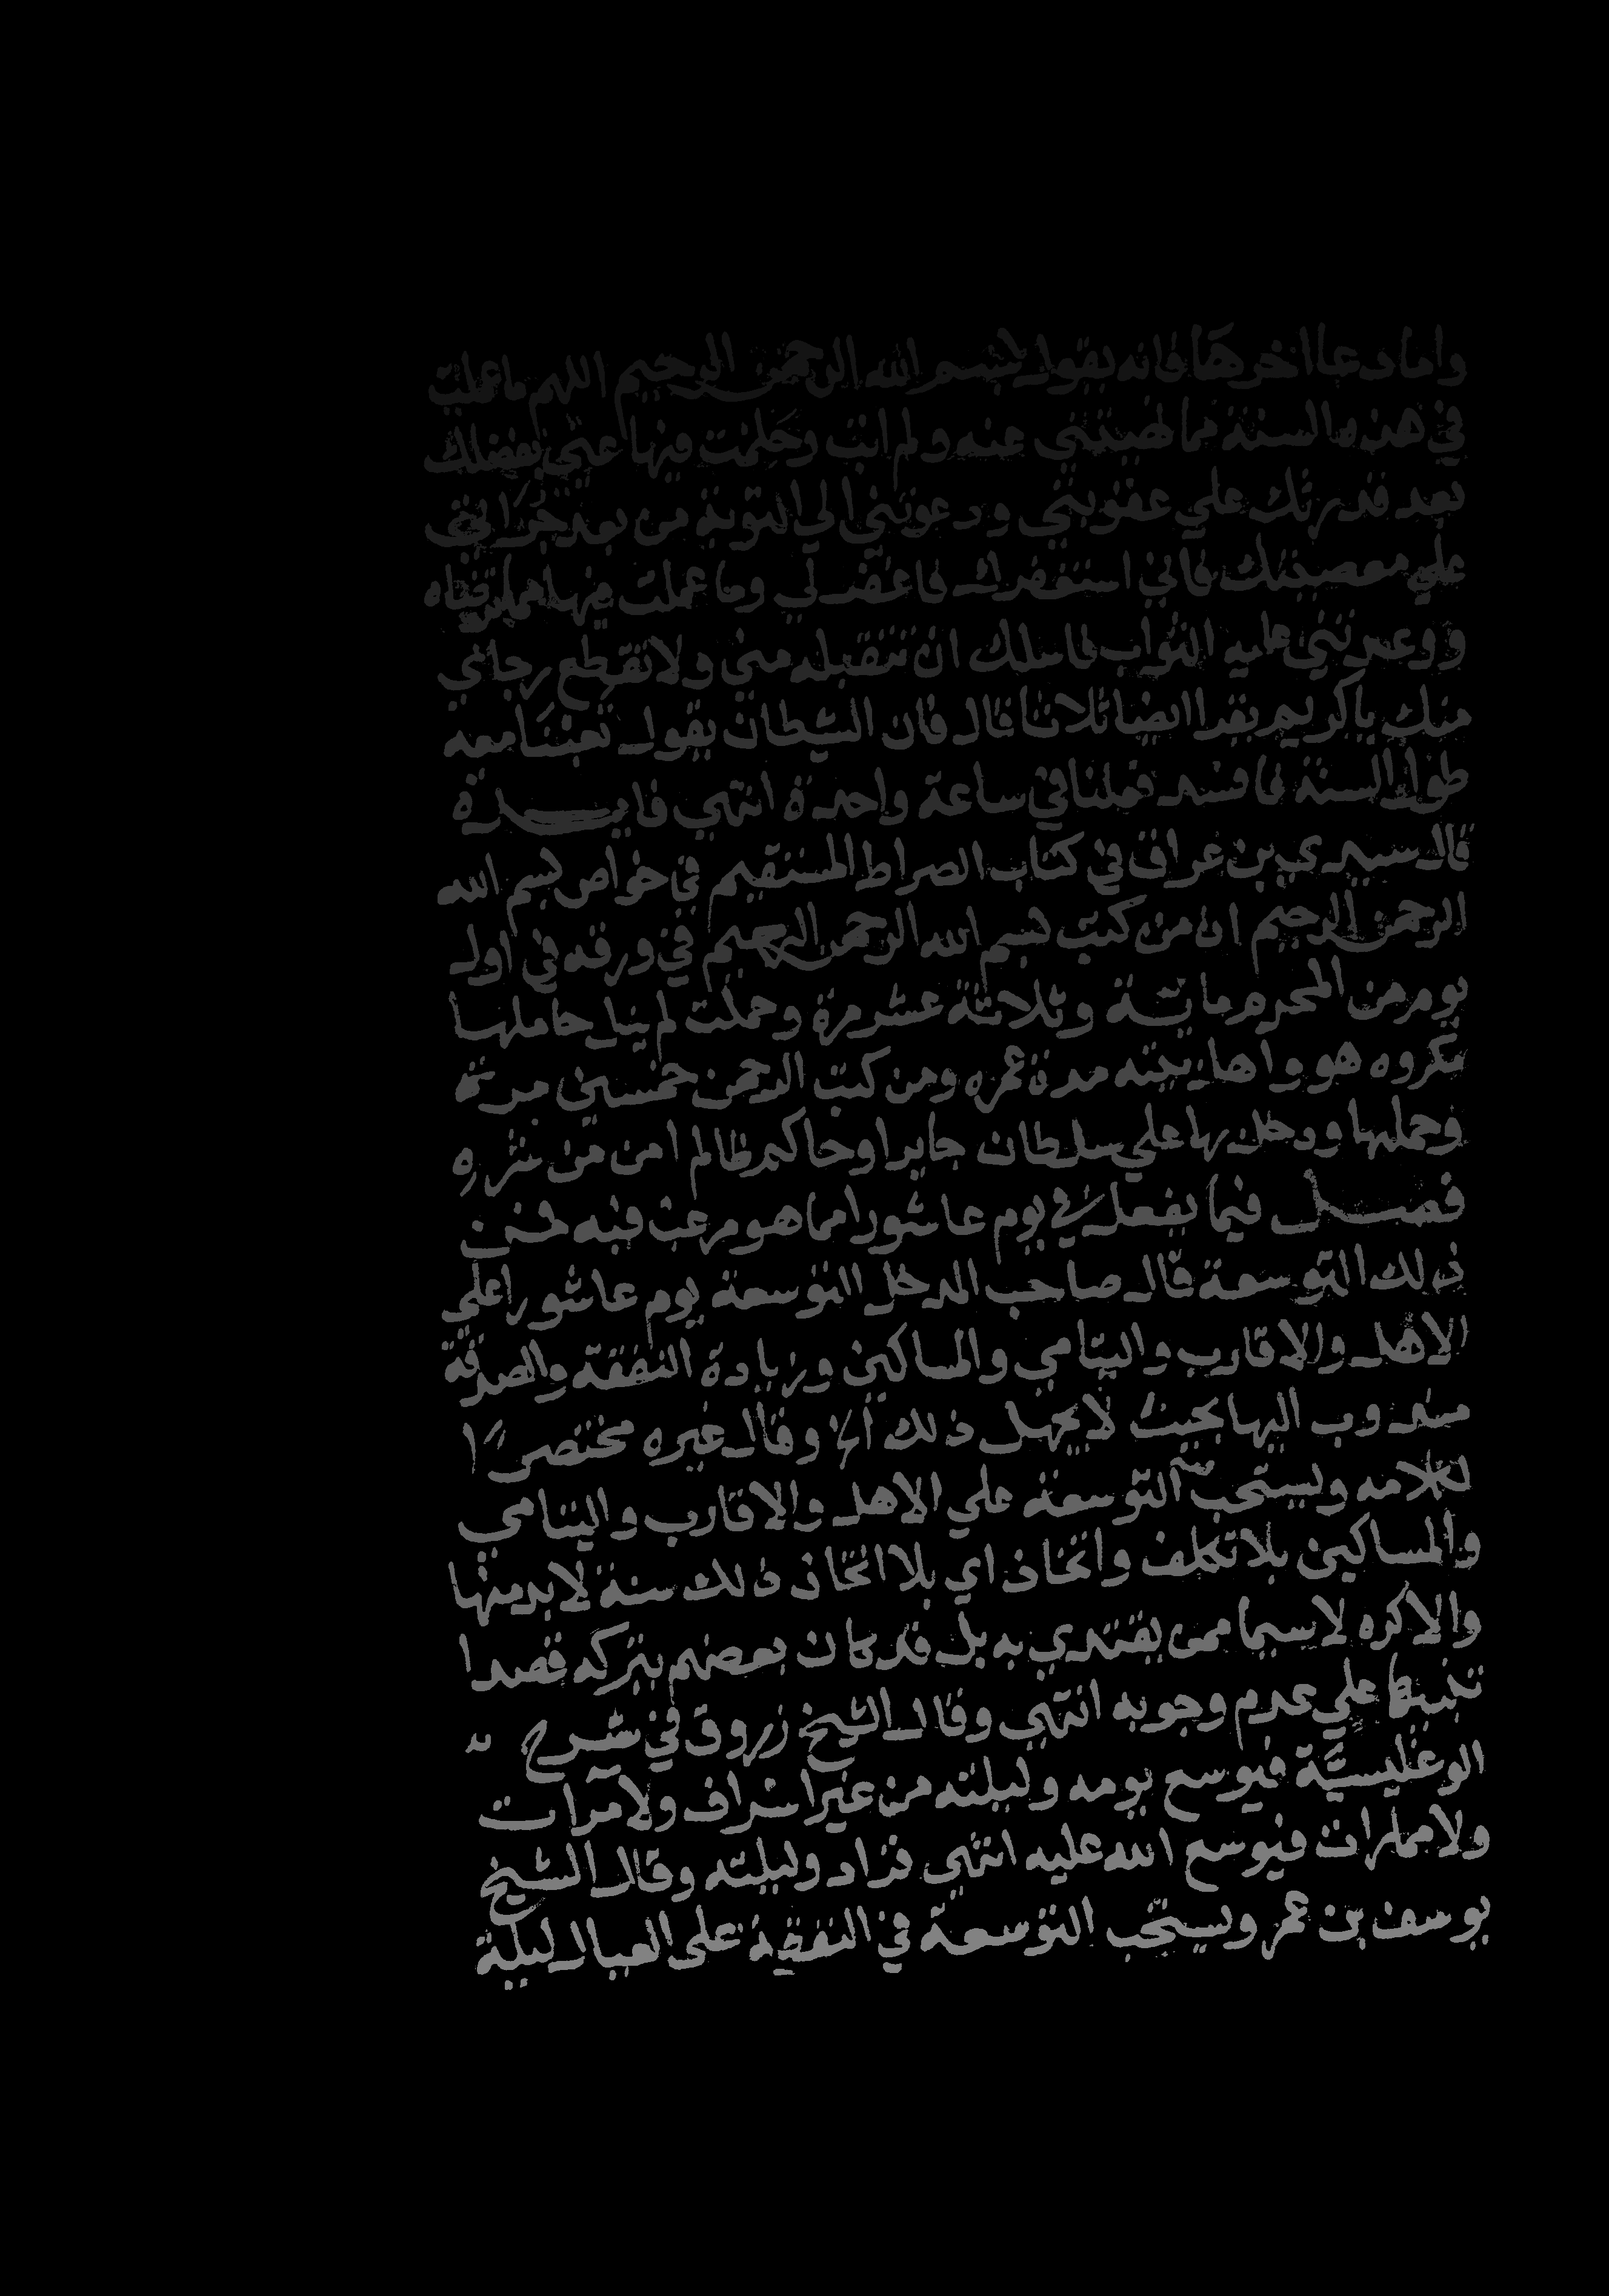 واما دعا اخرها فانه يقول بسم الله الرحمن الرحيم اللهم ما عملت
في هذه السنة مما نهيتني عنه ولم اتب وحلمت فيها عني بفضلك
بعد قدرتك علي عقوبتي ودعوتني الي التوبة من بعد جراتي
علي معصيتك فاني استغفرك فاغفر لي وما عملت فيها مما ترضاه
ووعدتني عليه الثواب فاسلك ان تتقبله مني ولا تقطع رجاي
منك ياكريم يقرا ايضا ثلاثا قال فان الشيطان يقول تعبنا معه
طول السنة فافسد فعلنا في ساعة واحدة انتهي فايدة
قال سيدي بن عراق في كتاب الصراط المستقيم في خواص بسم الله
الرحمن الرحيم ان من كتب بسم الله الرحمن الرحيم في ورقه في اول
يوم من المحرم ماية وثلاثة عشر مرة وحملت لم ينل حاملها
مكروه هو واهل بيته مدة عمره ومن كتب الرحمن خمسين مرة
وحملها ودخل بها علي سلطان جاير اوحاكم ظالم امن من شره
فصل فيما يفعل في يوم عاشورا مما هو مرغب فيه فمن
ذلك التوسعة قال صاحب المدخل التوسعة يوم عاشورا علي
الاهل والاقارب واليتامي والمساكين وزيادة النفقة والصدقة
مندوب اليها بحيث لا يجهل ذلك اه وقال غيره مختصرا
لكلامه ويستحب التوسعة علي الاهل والاقارب واليتامي
والمساكين بلا تكلف واتخاذ اي بلا اتخاذ ذلك سنة لابد منها
والا كره لاسيما ممن يقتدي به بل قد كان بعضهم يتركه قصدا
تنبيها علي عدم وجوبه انتهي وقال الشيخ زروق في شرح
الوغليسيَّة فيوسع يومه وليلته من غير اسراف ولا مرات
ولا ممارات فيوسع الله عليه انتهي فزاد وليلته وقال الشيخ
يوسف بن عمر ويستحب التوسعة في النفقة علي العيال ليلة